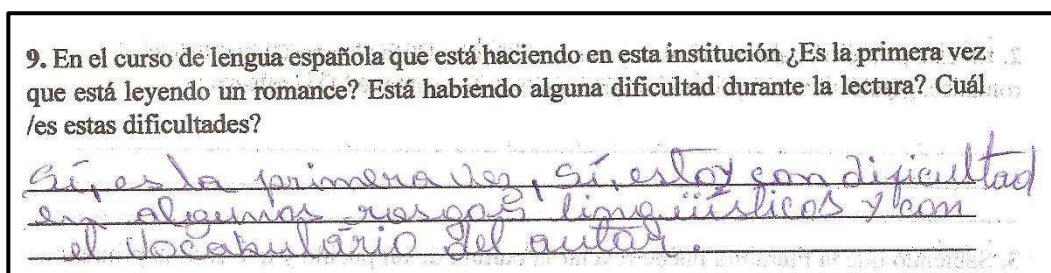 9. En el curso de lengua española que está haciendo en esta institución ¿Es la primera vez
que está leyendo un romance? Está habiendo alguna dificultad durante la lectura? Cuál
/es estas dificultades?
Sí, es la primera vez, Sí, estoy con dificultad
en algunos rasgos lingüísticos y con
el vocabulário del autor.